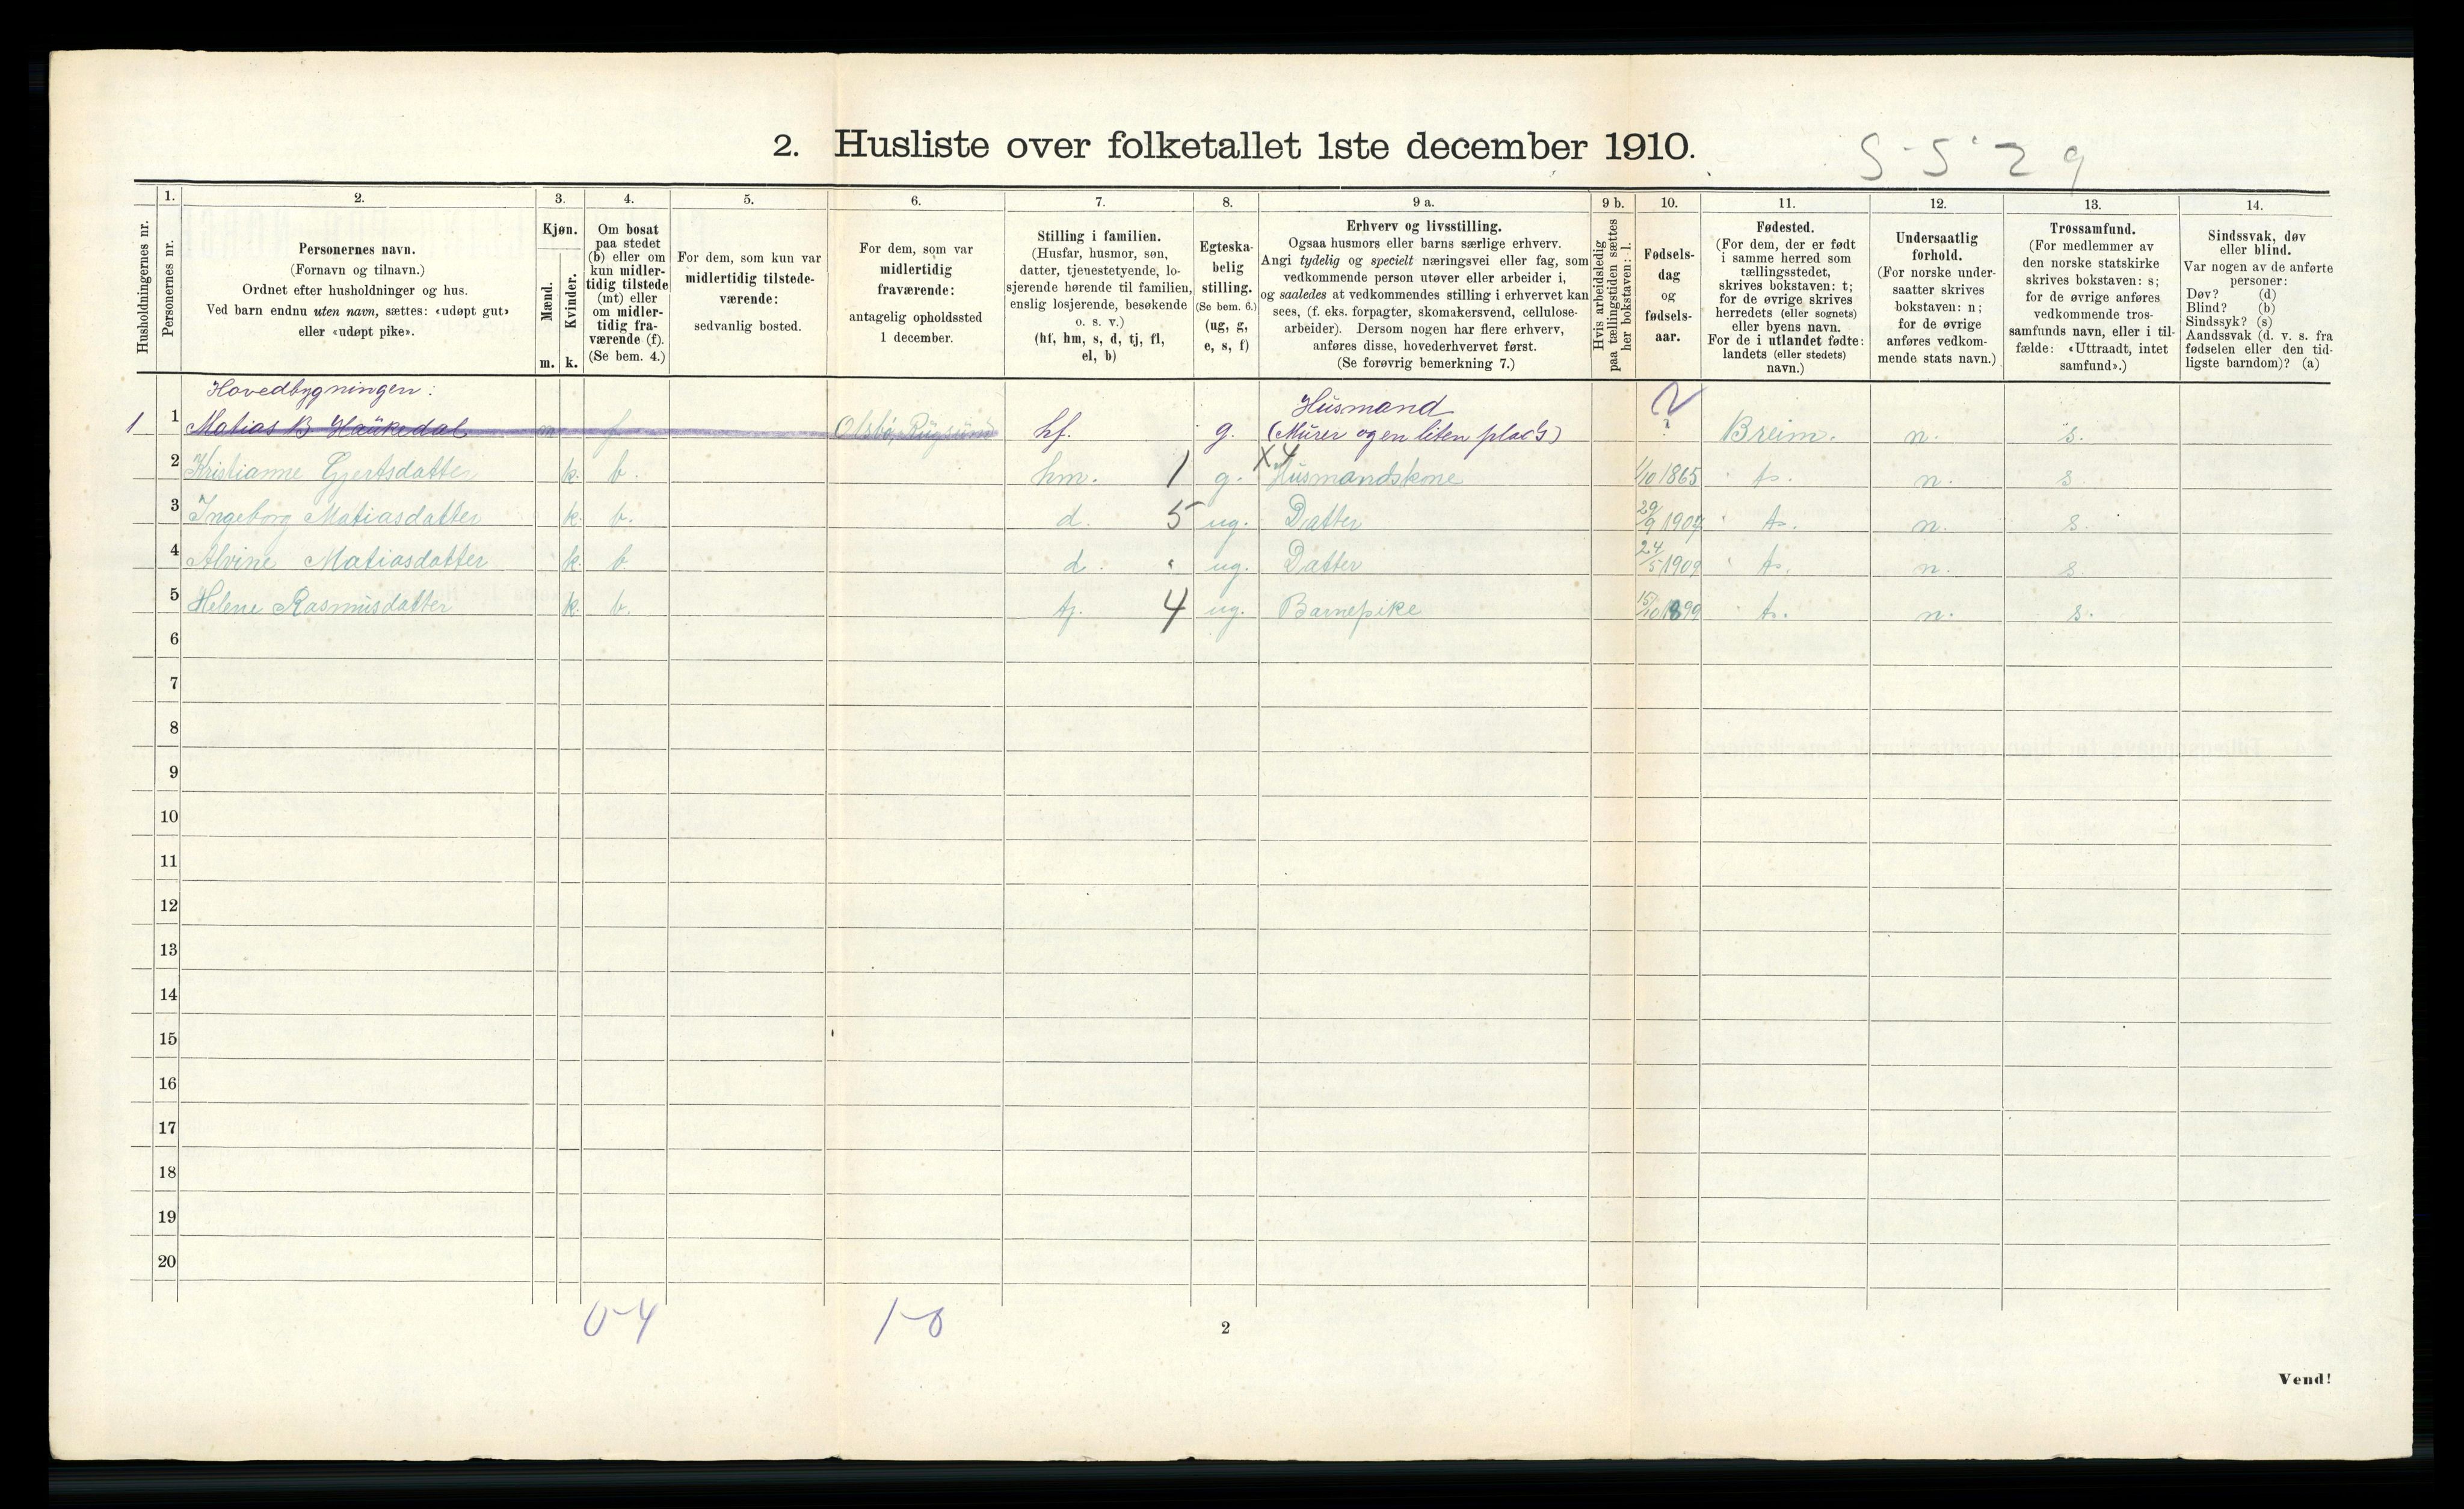 2. Husliste over folketallet 1ste december 1910.
5-5-29
Husholdningernes nr.
1. Personernes nr.
2.
Personernes navn.
(Fornavn og tilnavn.)
Ordnet efter husholdninger og hus.
Ved barn endnu uten navn, sættes: «udøpt gut»
eller «udøpt pike».
3.
Kjøn.
Mænd. m.
Kvinder. k.
4.
Om bosat
paa stedet
(b) eller om
kun midler-
tidig tilstede
(mt) eller
om midler-
tidig fra-
værende (f).
(Se bem. 4.)
5.
For dem, som kun var
midlertidig tilstede-
værende:
sedvanlig bosted.
6.
For dem, som var
midlertidig
fraværende:
antagelig opholdssted
1 december.
7.
Stilling i familien.
(Husfar, husmor, søn,
datter, tjenestetyende, lo-
sjerende hørende til familien,
enslig losjerende, besøkende
o. s. v.)
(hf, hm, s, d, tj, fl,
el, b)
8.
Egteska-
belig
stilling.
(Se bem. 6.)
(ug, g,
e, s, f)
9 a.
Erhverv og livsstilling.
Ogsaa husmors eller barns særlige erhverv.
Angi tydelig og specielt næringsvei eller fag, som
vedkommende person utøver eller arbeider i,
og saaledes at vedkommendes stilling i erhvervet kan
sees, (f. eks. forpagter, skomakersvend, cellulose-
arbeider). Dersom nogen har flere erhverv,
anføres disse, hovederhvervet først.
(Se forøvrig bemerkning 7.)
9 b.
Hvis arbeidsledig
paa tællingstiden sættes
her bokstaven: l.
10.
Fødsels-
dag
og
fødsels-
aar.
11.
Fødested.
(For dem, der er født
i samme herred som
tællingsstedet,
skrives bokstaven: t;
for de øvrige skrives
herredets (eller sognets)
eller byens navn.
For de i utlandet fødte:
landets (eller stedets)
navn.)
12.
Undersaatlig
forhold.
(For norske under-
saatter skrives
bokstaven: n;
for de øvrige
anføres vedkom-
mende stats navn.)
13.
Trossamfund.
(For medlemmer av
den norske statskirke
skrives bokstaven: s;
for de øvrige anføres
vedkommende tros-
samfunds navn, eller i til-
fælde: «Uttraadt, intet
samfund».)
14.
Sindssvak, døv
eller blind.
Var nogen av de anførte
personer:
Døv? (d)
Blind? (b)
Sindssyk? (s)
Aandssvak (d. v. s. fra
fødselen eller den tid-
ligste barndom)? (a)
Hovedbygningen:
Husmand
1 1 Matias B. Haukedal m f Olsbø, Rugsund hf. g. (Murer og en liten plads) ? Breim. n. s.
2 Kristianne Gjertsdatter k. b. hm. 1 g. X4 Husmandskone 1/10 1865 t. n. s.
3 Ingeborg Matiasdatter k. b. d. 5 ug. Datter 29/9 1907 t. n. s.
4 Alvine Matiasdatter k. b d. " ug. Datter 24/5 1909 t. n. s.
5 Helene Rasmusdatter k. b. tj. 4 ug. Barnepike 15/10 1899 t. n. s.
6
7
8
9
10
11
12
13
14
15
16
17
18
19
20
0-4 1-0
2
Vend!